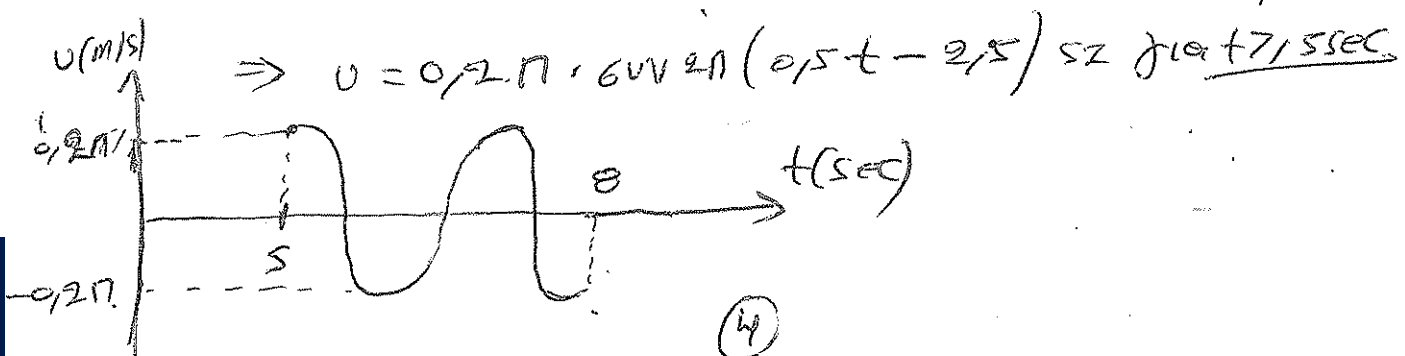 υ(m/s)
⇒ υ = 0,2.π · συν 2π (0,5 t - 2,5) SI για t ≥ 5sec
0,2π
t(sec)
8
5
-0,2π
4